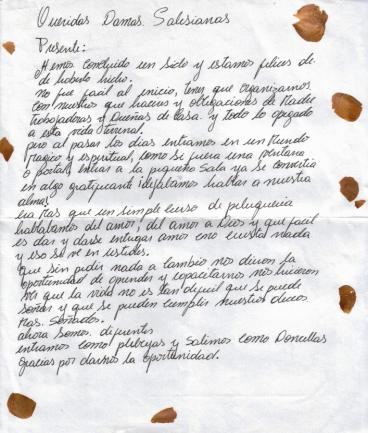 Queridas Damas Salesianas
Presente:
Hemos concluido un siclo y estamos felices de
de haberlo hecho.
no fue facil al inicio, tener que organizarnos
con nuestros que haceres y obligaciones de Madre
trabajadoras y Dueñas de casa. y todo lo apegado
a esta vida terrenal.
pero al pasar los dias entramos en un Mundo
magico y espiritual, como si fuera una ventana
o portal, entrar a la pequeña sala ya se convertia
en algo gratificante dejabamos hablar a nuestra
alma!
era mas que un simple curso de peluqueria
hablabamos del amor, del amor a Dios y que facil
es dar y darse entregar amor eno cuesta nada
y eso se ve en ustedes.
que sin pedir nada a cambio nos dieron la
oportunidad de aprender y capacitarnos nos hicieron
ver que la vida no es tan dificil que se puede
soñar y que se pueden cumplir nuestros
mas. soñados.
ahora somos. diferentes
entramos como plebeyas y salimos como Doncellas
gracias por darnos la oportunidad.